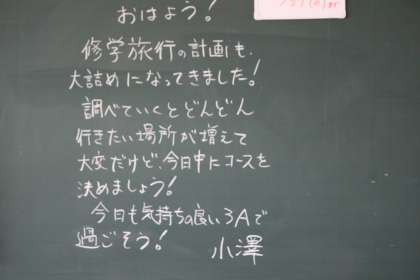 おはよう!
修学旅行の計画も、
大詰めになってきました!
調べていくとどんどん
行きたい場所が増えて
大変だけど、今日中にコースを
決めましょう!
今日も気持ちの良い3Aで
過ごそう!
小澤